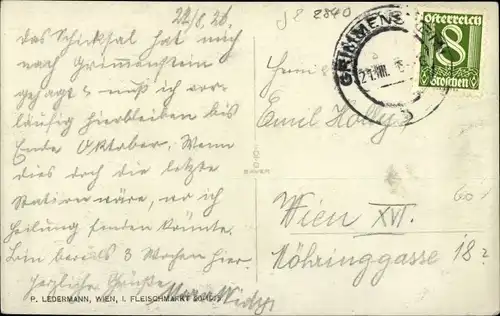 22/8. 26.
Das Schicksal hat mich
nach Grimmenstein
gejagt & muß ich vor-
läufig hierbleiben bis
Ende Oktober. Wenn
dies doch die letzte
Station wäre, wo ich
Heilung finden könnte.
Bin bereits 3 Wochen hier.
Herzliche Grüße
P. LEDERMANN, WIEN, I. FLEISCHMARKT
2840
GRIMMENS
21.VIII.
Österreich
8
Groschen
Emil Holly
BAUER
Wien XVI.
Möhringgasse 18